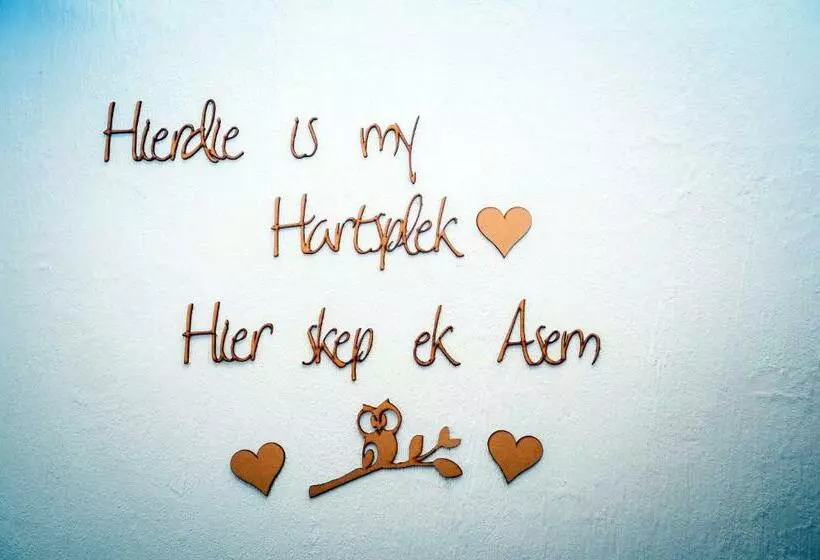 Hierdie is my
Hartsplek
Hier skep ek Asem